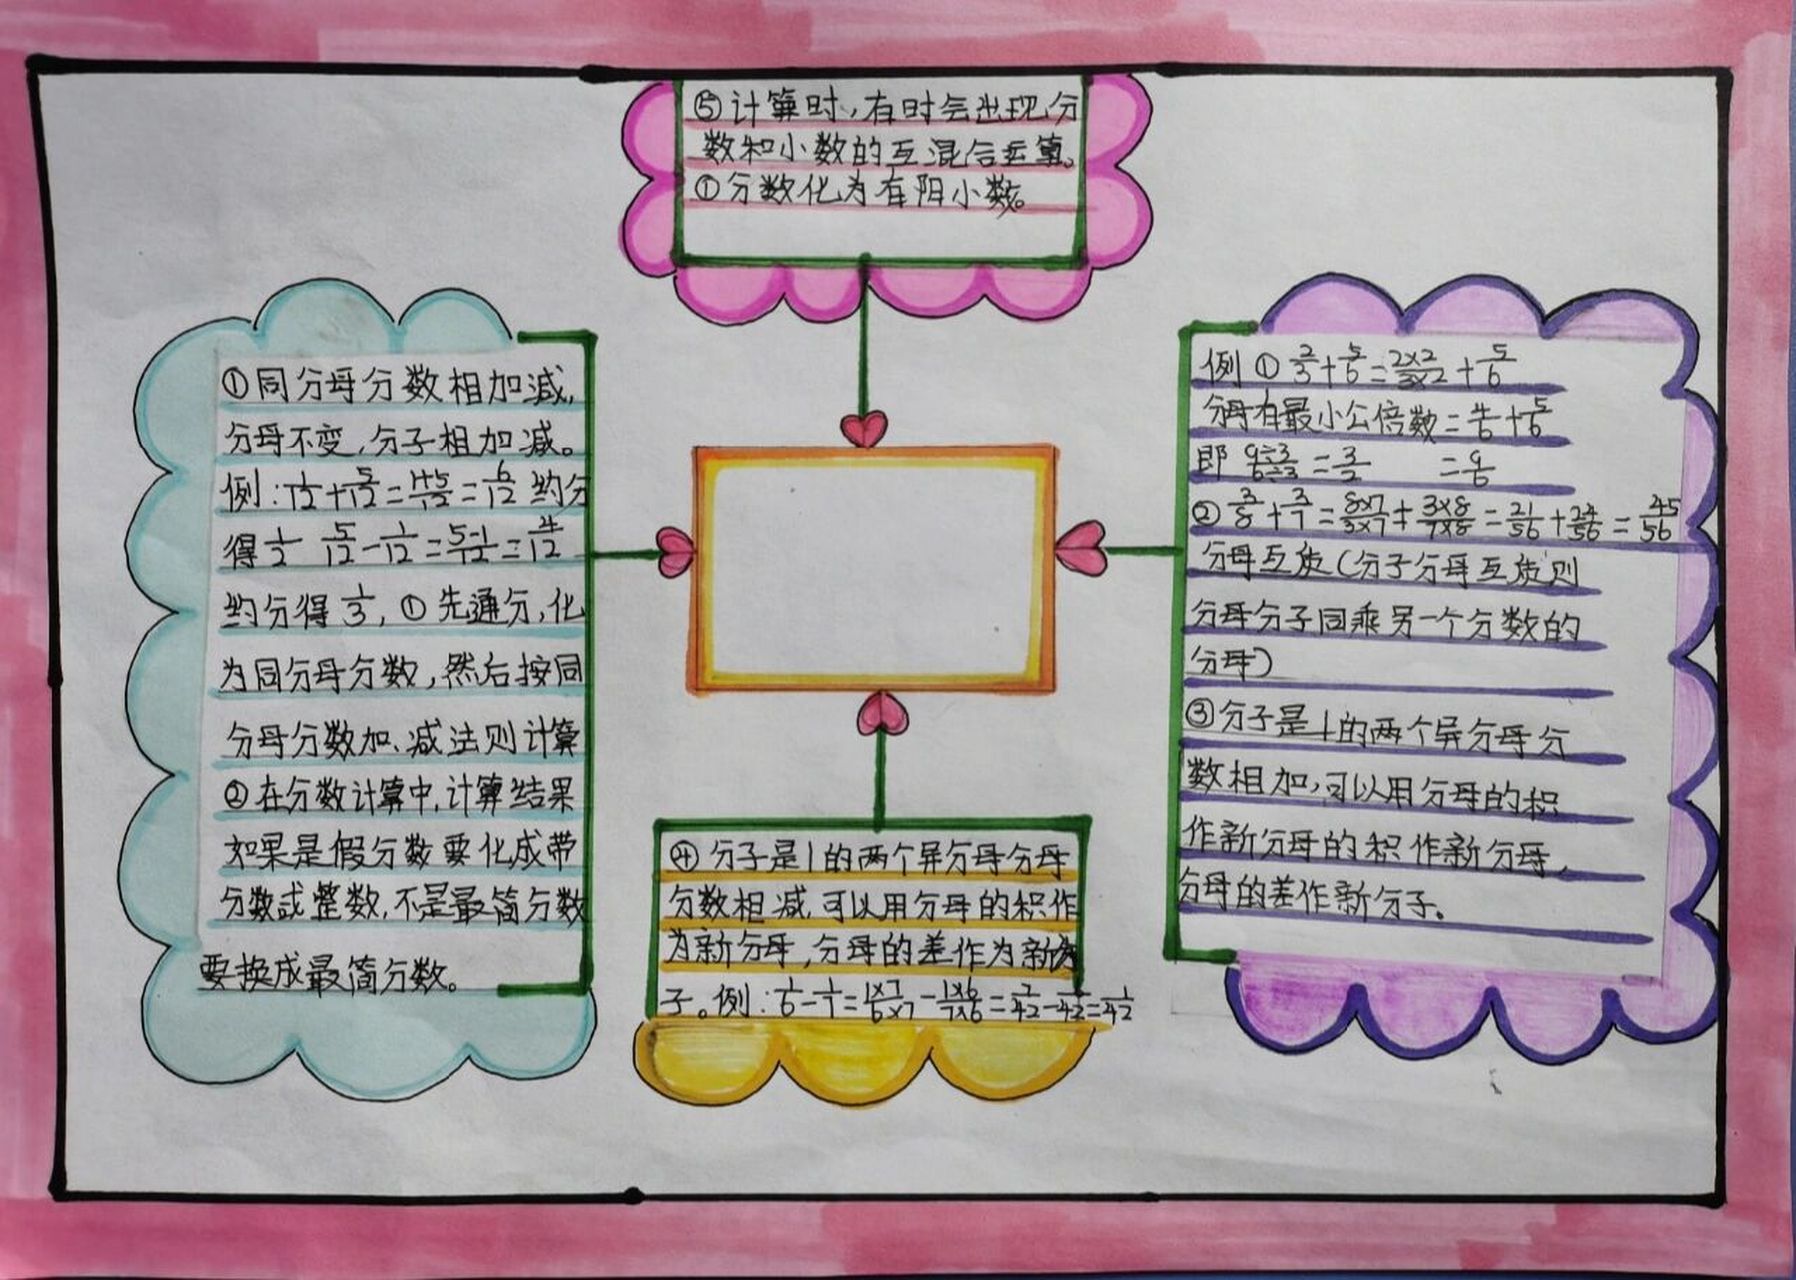 ⑤计算时,有时会出现分
数和小数的互混合运算。
①分数化为有限小数。
①同分母分数相加减,
分母不变,分子相加减。
例:1/12+5/12=1+5/12=6/12 约分
得1/2 5/12-1/12=5-1/12=4/12
约分得1/3,①先通分,化
为同分母分数,然后按同
分母分数加、减法则计算
②在分数计算中,计算结果
如果是假分数要化成带
分数或整数,不是最简分数
要换成最简分数。
例①2/3+5/6=2×2/3×2+5/6
分母有最小公倍数=4/6+5/6
即 9÷3/6÷3=3/2 =9/6
②3/8+3/7=8×7/3×7+3×8/7×8=21/56+24/56=45/56
分母互质(分子分母互质则
分母分子同乘另一个分数的
分母)
③分子是1的两个异分母分
数相加,可以用分母的积
作新分母的积作新分母,
分母的差作新分子。
④分子是1的两个异分母分母
分数相减,可以用分母的积作
为新分母,分母的差作为新分
子。例:1/6-1/7=1×7/6×7-1×6/7×6=7/42-6/42=1/42